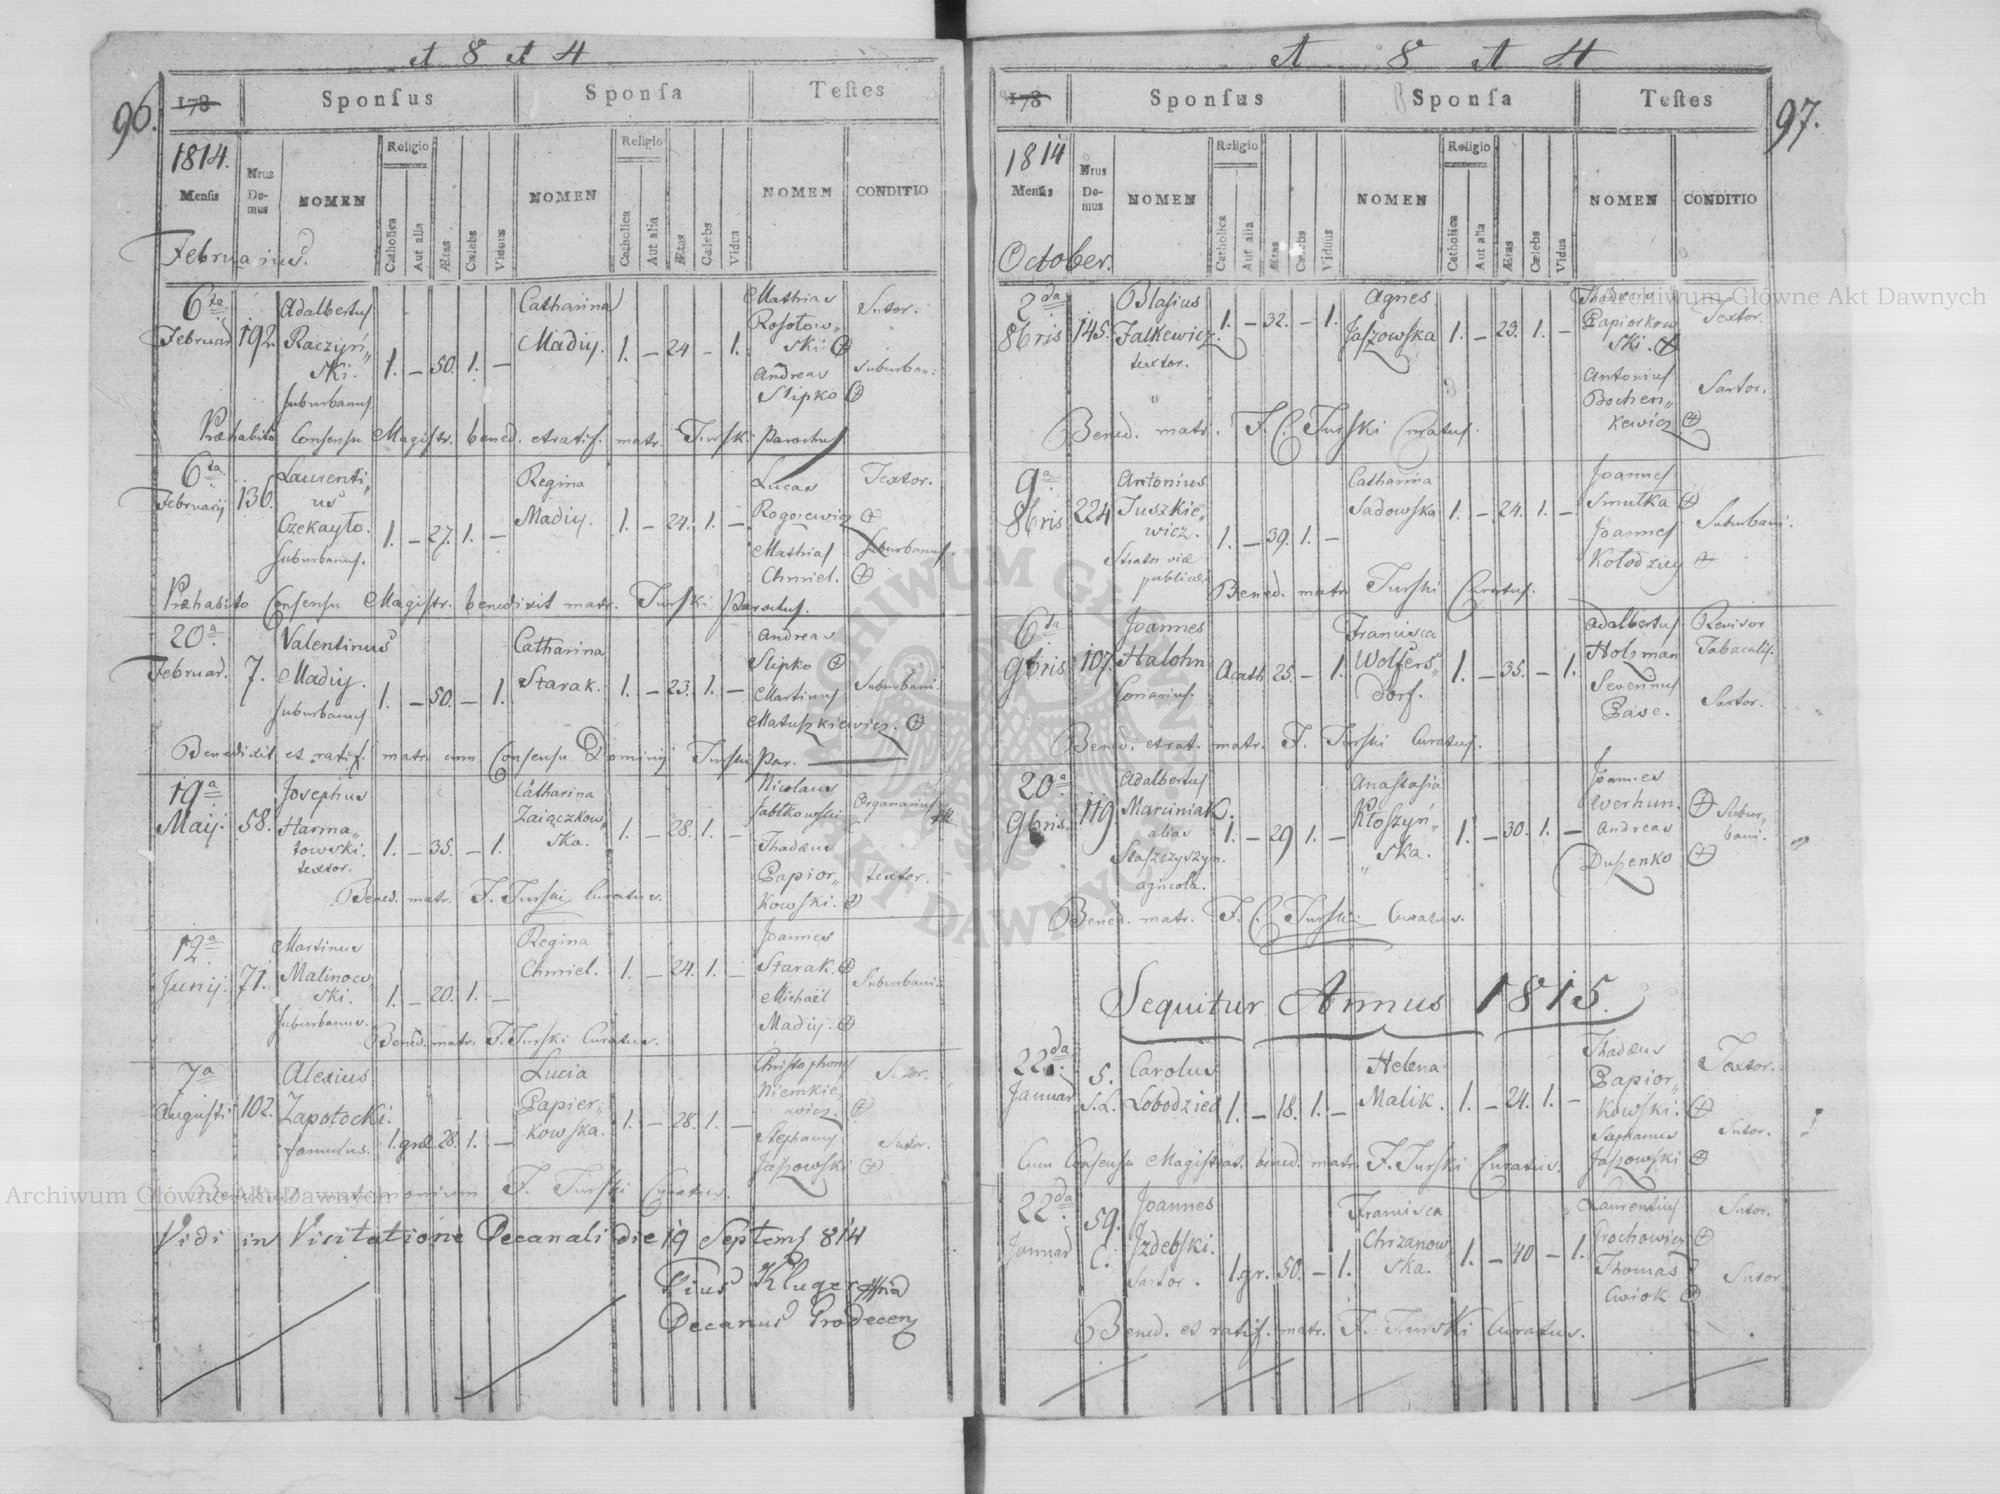 A 8 A 4
96.
178
Sponsus
Sponsa
Testes
1814.
Mensis
Nrus Domus
NOMEN
Religio
Catholica
Aut alia
Ætas
Cælebs
Viduus
NOMEN
Religio
Catholica
Aut alia
Ætas
Cælebs
Vidua
NOMEN
CONDITIO
Februarius.
6ta Februar 192. Adalbertus Raczyń„ ski. suburbanus 1. – 50. 1. – Catharina Madiy. 1. – 24 – 1. Mathias Rosołow„ ski ⊕ Sutor.
Andreas Slipko ⊕ suburban:
Præhabito Consensu Magistr. bened. et ratif. matr. Turski Parochus
6ta Februarij 136. Laurenti„ us Czekayło. suburbanus. 1. – 27. 1. – Regina Madiy. 1. – 24. 1. – Lucas Rogozewicz ⊕ Textor.
Mathias Chmiel. ⊕ suburbanus.
Præhabito Consensu Magistr. benedixit matr. Turski Parochus.
20a Februar. 7. Valentinus Madiy. suburbanus 1. – 50. – 1. Catharina Starak. 1. – 23. 1. – Andreas Slipko ⊕
Martinus Matuszkiewicz. ⊕ suburbani.
Benedixit et ratif. matr. cum Consensu Dominij Turski Par.
19a Maij. 58. Josephus Harma„ towski. textor. 1. – 35. – 1. Catharina Zaiączkow„ ska. 1. – 28. 1. – Nicolaus Jabłkowski Organarius
Thadæus Papior„ kowski. ⊕ textor.
Bened. matr. F. Turski Curatus.
12a Junij. 71. Martinus Malinow„ ski. suburbanus. 1. – 20. 1. – Regina Chmiel. 1. – 24. 1. – Joannes Starak. ⊕
Michaël Madiy. ⊕ Suburbani.
Bened. matr. F. Turski Curatus.
7a Augusti 102. Alexius Zapotocki. famulus. 1. – 28. 1. – Lucia Papier„ kowska. 1. – 28. 1. – Christophorus Niemkie„ wicz. ⊕ Sutor.
Stephanus Jaszowski ⊕ Sutor.
matrimonium F. Turski Curatus.
Vidi in Visitatione Decanali die 19 Septembr 814
Pius Kluger
Decanus Grodecen
A 8 A 4
97.
178
Sponsus
Sponsa
Testes
1814
Mensis
Nrus Domus
NOMEN
Religio
Catholica
Aut alia
Ætas
Cælebs
Viduus
NOMEN
Religio
Catholica
Aut alia
Ætas
Cælebs
Vidua
NOMEN
CONDITIO
October.
2da 8bris 145. Blasius Falkewicz. textor. 1. – 32. – 1. Agnes Jaszowska 1. – 23. 1. – Thadæus Papiorkow ski. ⊕ Textor.
Antonius Bochen„ kewicz ⊕ Sartor.
Bened. matr. F. C. Turski Curatus.
9a 8bris 224 Antonius Juszkie„ wicz. Strator viæ publicæ. 1. – 39. 1. – Catharina Sadowska 1. – 24. 1. – Joannes Smutka ⊕
Joannes Kołodziey ⊕ Suburbani.
Bened. matr. Turski Curatus.
6ta 9bris 107. Joannes Halohn Coriarius. Acath 25. – 1. Francisca Wolfers„ dorf. 1. – 35. – 1. Adalbertus Holzman Revisor Tabacalis.
Severinus Pase. Sartor.
Bened. et rat. matr. F. Turski Curatus.
20a 9bris. 119 Adalbertus Marciniak. alias Staszczyszyn. agricola. 1. – 29 1. – Anastasia Kłoszyń„ „ska. 1. – 30. 1. – Joannes Werhun. ⊕ Subur„ bani.
Andreas Duszenko ⊕
Bened. matr. F. C. Turski Curatus.
Sequitur Annus 1815.
22da Januar 5. S.L. Carolus Lobodziec 1. – 18. 1. – Helena Malik. 1. – 24. 1. – Thadæus Papior„ kowski. ⊕ Textor.
Stephanus Jaszowski ⊕ Sutor.
Cum Consensu Magistrat. bened. matr. F. Turski Curatus.
22da Januar 59. C. Joannes Jzdebski. Sartor. 1.gr. 50. – 1. Francisca Chrzanow„ ska. 1. – 40 – 1. Laurentius Grochowicz ⊕ Sutor.
Thomas Cwiok ⊕ Sutor
Bened. et ratif. matr. F. Turski Curatus.
Archiwum Główne Akt Dawnych
ARCHIWUM GŁÓWNE AKT DAWNYCH
Archiwum Główne Akt Dawnych